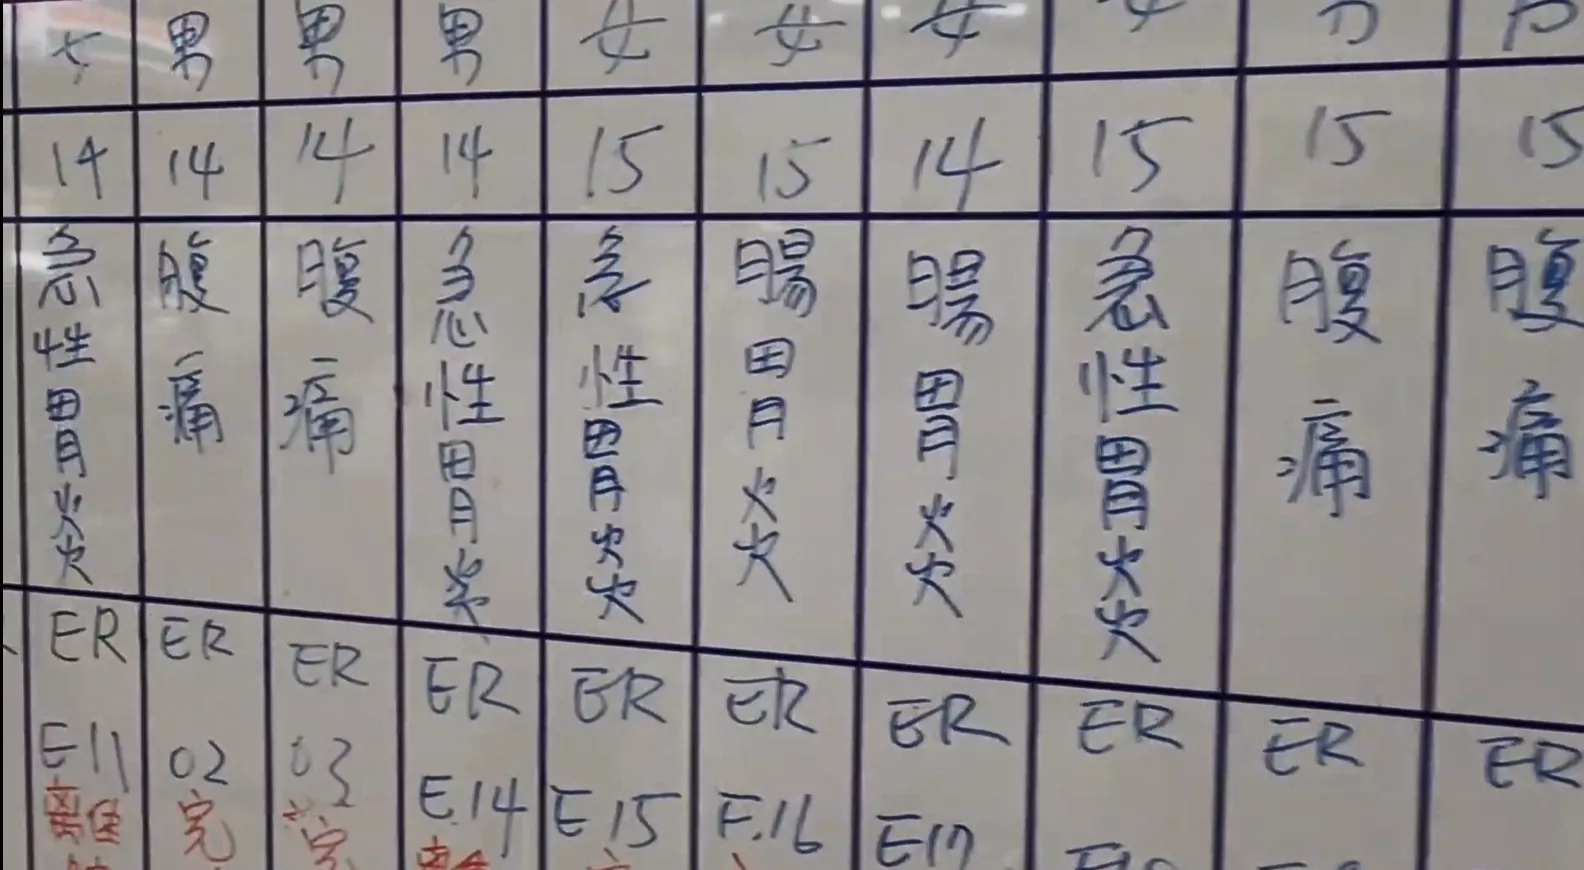 女 男 男 男 女 女 女 女
14 14 14 14 15 15 14 15 15 15
急性胃炎 腹痛 腹痛 急性胃炎 急性胃炎 腸胃炎 腸胃炎 急性胃炎 腹痛 腹痛
ER ER ER ER ER ER ER ER ER ER
E11 02 03 E.14 E.15 E.16 E17
完 完